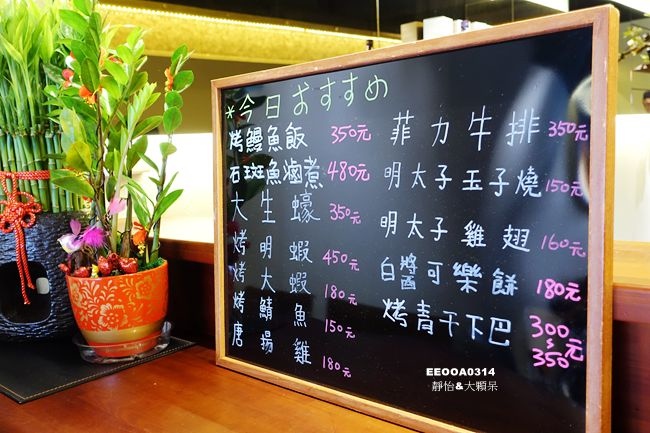 *今日おすすめ
烤鰻魚飯 350元
石斑魚滷煮 480元
大生蠔 350元
烤明蝦 450元
烤大蝦 180元
烤鯖魚 150元
唐揚雞 180元
菲力牛排 350元
明太子玉子燒 150元
明太子雞翅 160元
白醬可樂餅 180元
烤青干下巴 300~350元
EEOOA0314
靜怡&大顆呆